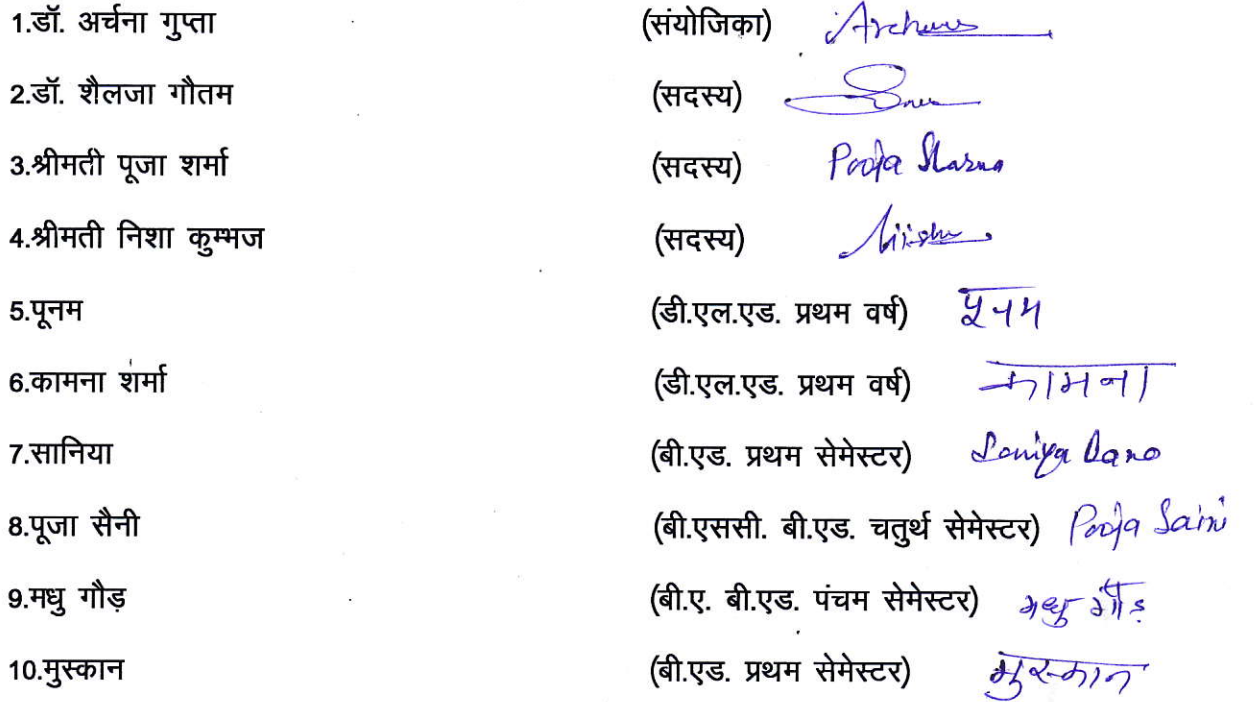 1.डॉ. अर्चना गुप्ता (संयोजिका) Archana
2.डॉ. शैलजा गौतम (सदस्य)
3.श्रीमती पूजा शर्मा (सदस्य) Pooja Sharma
4.श्रीमती निशा कुम्भज (सदस्य) Nisha
5.पूनम (डी.एल.एड. प्रथम वर्ष) पूनम
6.कामना शर्मा (डी.एल.एड. प्रथम वर्ष) कामना
7.सानिया (बी.एड. प्रथम सेमेस्टर) Saniya Bano
8.पूजा सैनी (बी.एससी. बी.एड. चतुर्थ सेमेस्टर) Pooja Saini
9.मधु गौड़ (बी.ए. बी.एड. पंचम सेमेस्टर) मधु गौड़
10.मुस्कान (बी.एड. प्रथम सेमेस्टर) मुस्कान